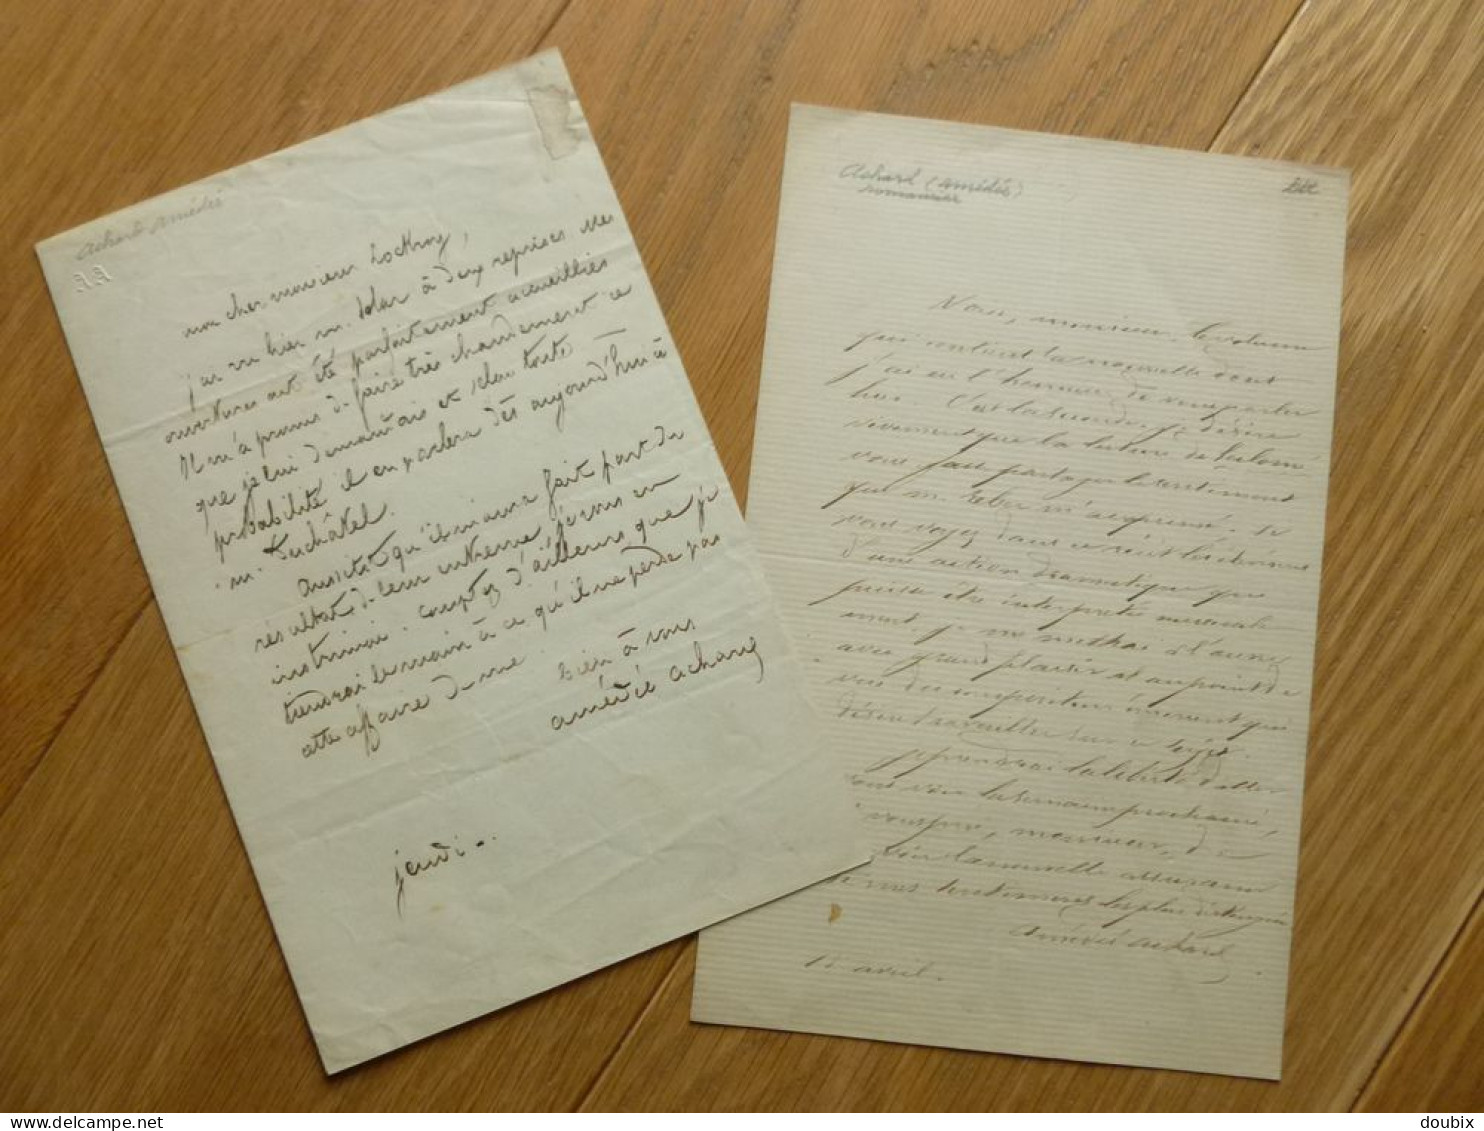 achard amédée
AA
mon cher monsieur Lockroy,
j'ai vu hier m. Solar à deux reprises. Mes
ouvertures ont été parfaitement accueillies
Il m'a promis de faire très chaudement ce
que je lui demandais et selon toute
probabilité il en parlera dès aujourd'hui à
m. Duchâtel.
aussitôt qu'il m'aura fait part du
résultat de leur entrevue, je vous en
instruirai. comptez d'ailleurs que je
tiendrai la main à ce qu'il ne perde pas
cette affaire de vue.
bien à vous
amédée achard
jeudi..
Achard (Amédée)
romancier
Litt
Voici, monsieur, le volume
qui contient la nouvelle dont
j'ai eu l'honneur de vous parler
hier. C'est la seconde. Je désire
vivement que la lecture de
vous fasse partager le sentiment
que m. Reber m'a exprimé. Si
vous voyez dans ce récit les éléments
d'une action dramatique qui
puisse être interprétée musicale
ment, je me mettrai à l'œuvre
avec grand plaisir et au point de
vue du compositeur éminent qui
désire travailler sur ce sujet.
je prendrai la liberté d'aller
vous voir la semaine prochaine,
vous prie, monsieur, de
la nouvelle assurance
de mes sentiments les plus distingués
Amédée Achard
15 avril.
doubix
delcampe.net